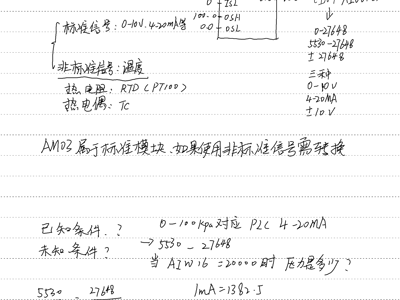 ISL
标准信号:0-10V、4-20mA等
100.0 OSH
0.0 OSL
0-27648
5530-27648
± 27648
非标准信号:温度
三种
热电阻:RTD(PT100)
0-10V
热电偶:TC
4-20MA
±10V
AM03属于标准模块、如果使用非标准信号需转换
已知条件.?
0-100kpa对应 PLC 4-20MA
未知条件?
→ 5530-27648
当 AIW16=20000时 压力是多少?
5530 27648
1mA=1382.5